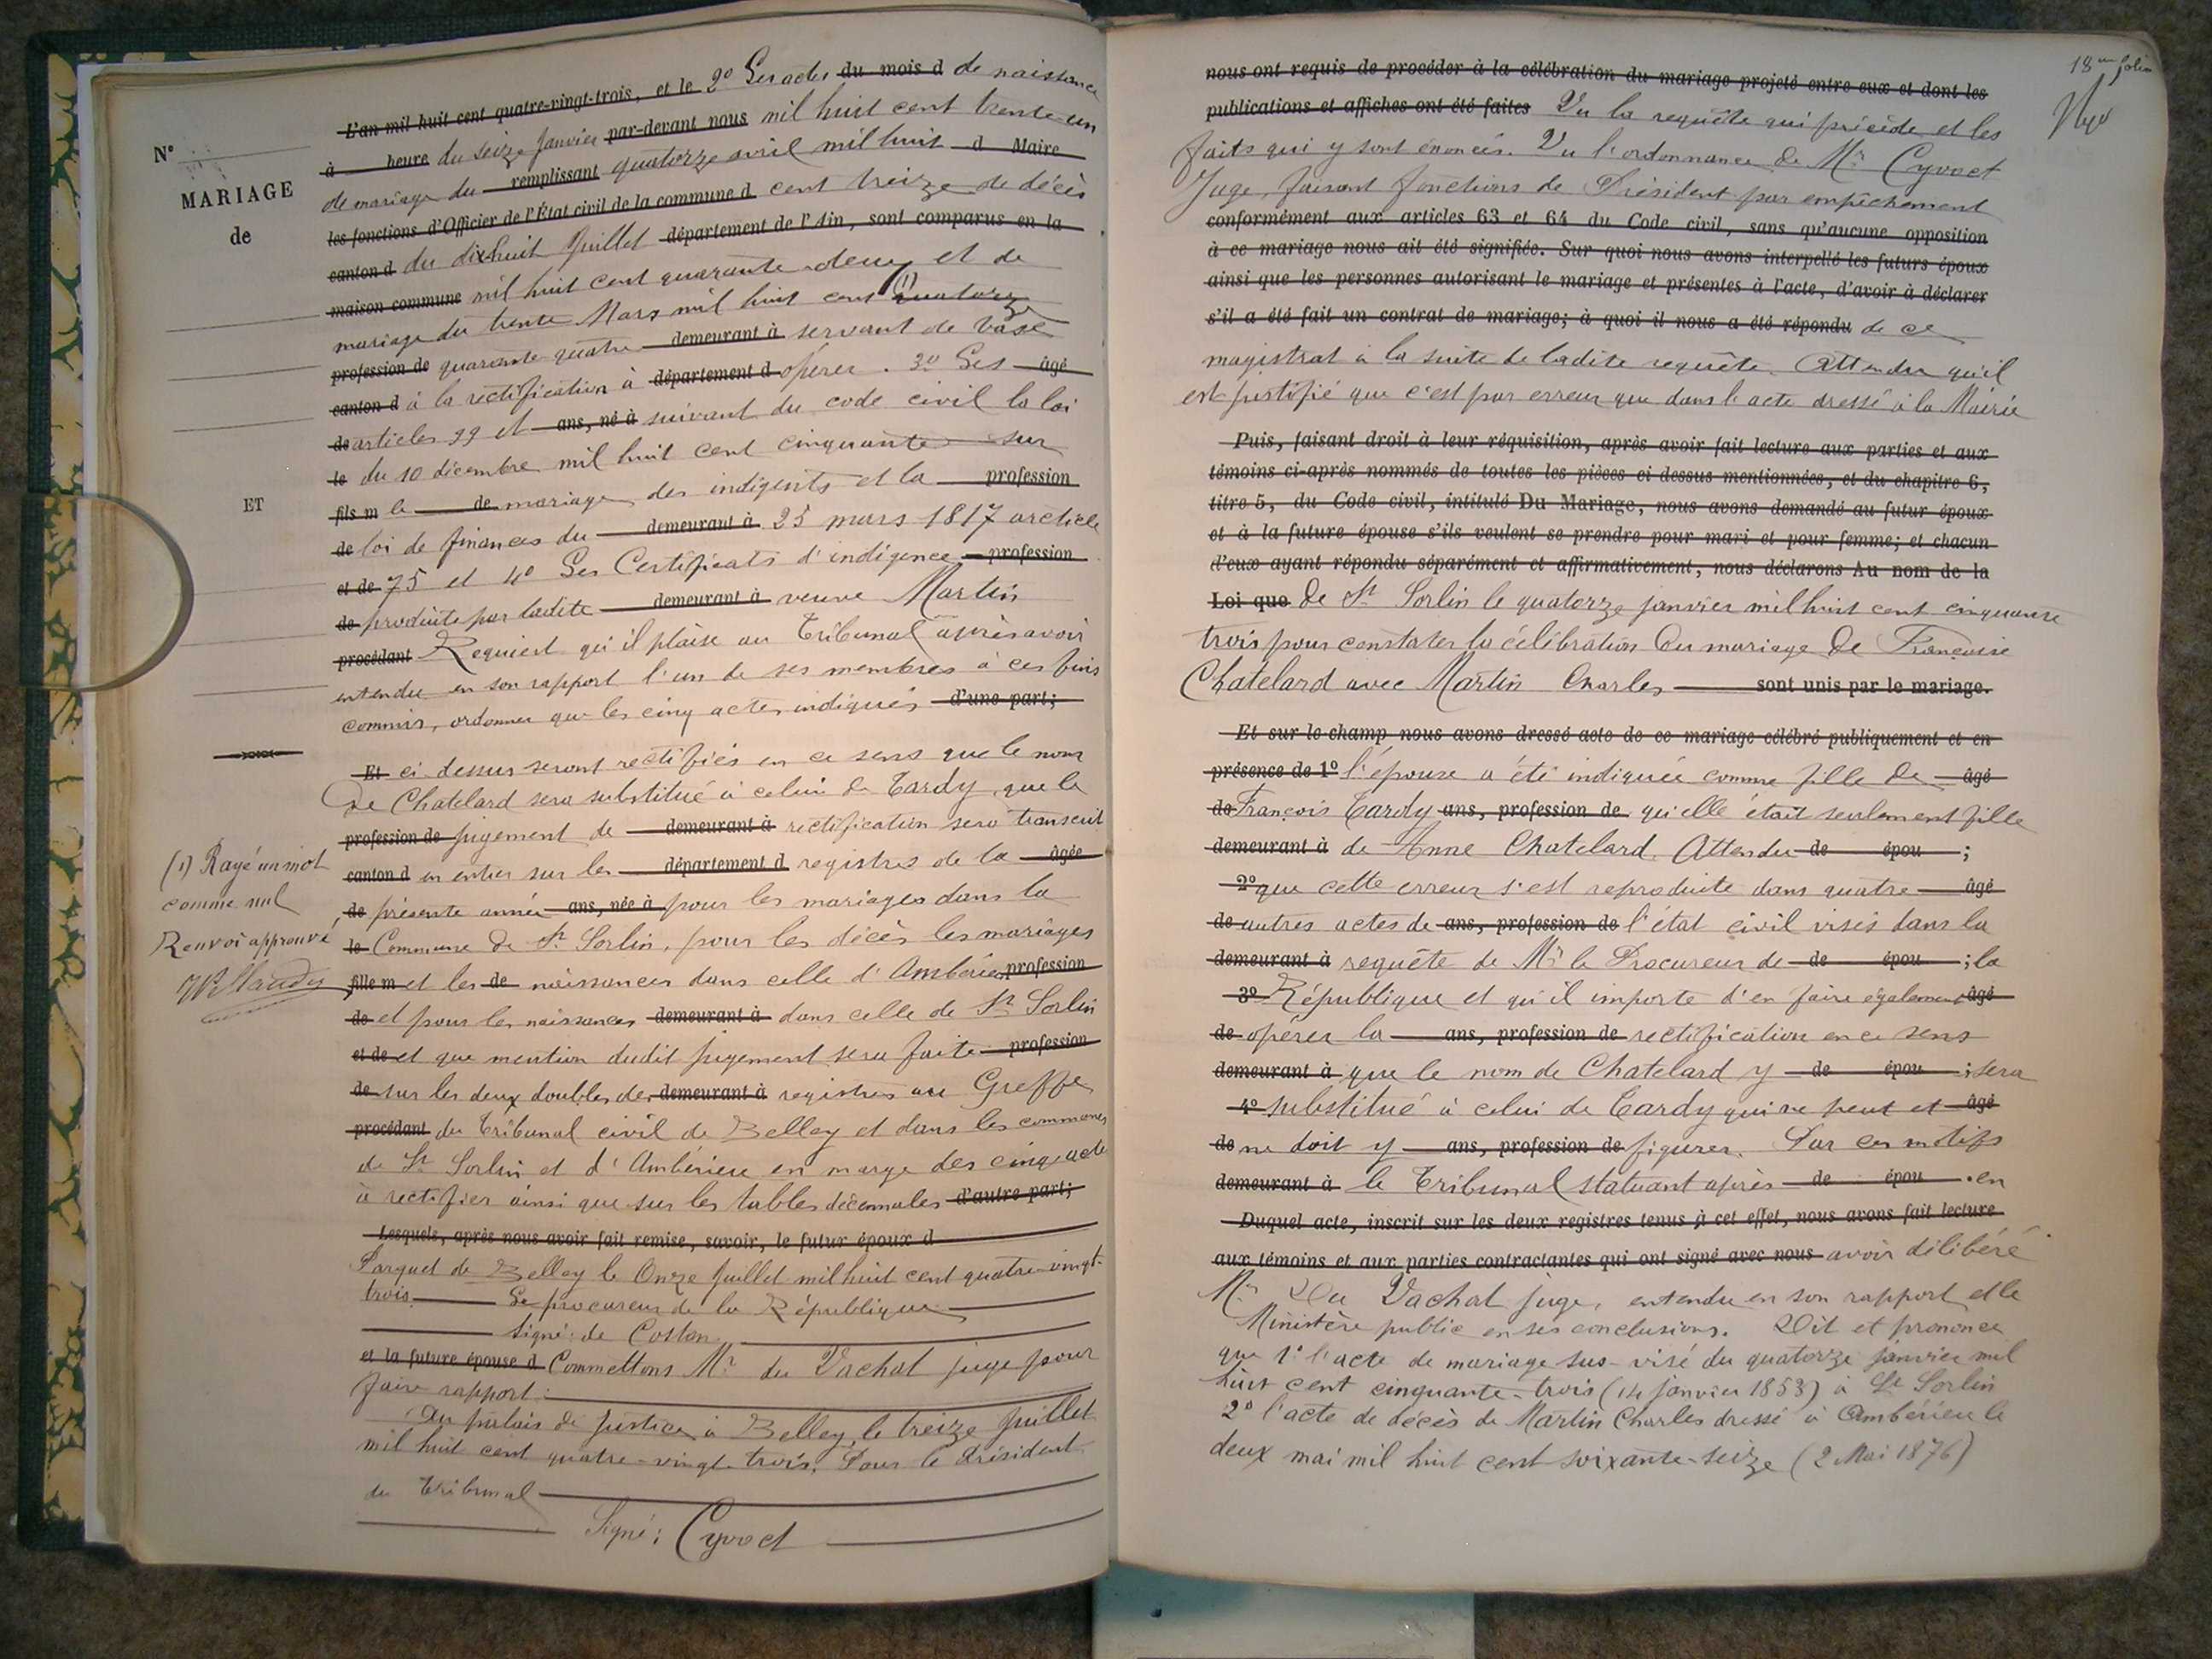 N°
MARIAGE
de
ET
(1) Rayé un mot
comme nul
Renvoi approuvé
L'an mil huit cent quatre-vingt-trois, et le 2° Les actes du mois d de naissance
à heure du seize Janvier par-devant nous mil huit cent trente-un
de mariage du remplissant quatorze avril mil huit d Maire
les fonctions d'Officier de l'État civil de la commune d cent treize de décès
canton d du dix-huit Juillet département de l'Ain, sont comparus en la
maison commune mil huit cent quarante-deux et de
mariage du trente Mars mil huit cent (1) quatorze
profession de quarante-quatre demeurant à servant de base
canton d à la rectification à département d opérer. 3° Les âgé
de articles 99 et ans, né à suivant du code civil la loi
le du 10 décembre mil huit cent cinquante sur
fils m le de mariage des indigents et la profession
de loi de finances du demeurant à 25 mars 1817 article
et de 75 et 4° Les Certificats d'indigence profession
de produits par ladite demeurant à veuve Martin
procédant Requiert qu'il plaise au Tribunal après avoir
entendu en son rapport l'un de ses membres à ces fins
commis, ordonner que les cinq actes indiqués d'une part;
Et ci-dessus seront rectifiés en ce sens que le nom
De Chatelard sera substitué à celui de Tardy, que le
profession de jugement de demeurant à rectification sera transcrit
canton d en entier sur les département d registres de la âgée
de présente année ans, née à pour les mariages dans la
le Commune de St Sorlin, pour les décès les mariages
fille m et les de naissances dans celle d'Ambérieu profession
de et pour les naissances demeurant à dans celle de St Sorlin
et de et que mention dudit jugement sera faite profession
de sur les deux doubles des demeurant à registres au Greffe
procédant du Tribunal civil de Belley et dans les communes
de St Sorlin et d'Ambérieu en marge des cinq actes
à rectifier ainsi que sur les tables décennales d'autre part;
Lesquels, après nous avoir fait remise, savoir, le futur époux d
Parquet de Belley le Onze Juillet mil huit cent quatre-vingt-
trois Le procureur de la République
Signé: de Coston
et la future épouse d Commettons Mr du Vachat juge pour
faire rapport:
Au palais de Justice à Belley, le treize Juillet
mil huit cent quatre-vingt-trois. Pour le Président
du Tribunal
Signé: Cyvoct
18me folio
nous ont requis de procéder à la célébration du mariage projeté entre eux et dont les
publications et affiches ont été faites Vu la requête qui précède et les
faits qui y sont énoncés. Vu l'ordonnance de Mr Cyvoct
Juge, faisant fonctions de Président par empêchement
conformément aux articles 63 et 64 du Code civil, sans qu'aucune opposition
à ce mariage nous ait été signifiée. Sur quoi nous avons interpellé les futurs époux
ainsi que les personnes autorisant le mariage et présentes à l'acte, d'avoir à déclarer
s'il a été fait un contrat de mariage; à quoi il nous a été répondu de ce
magistrat à la suite de ladite requête. Attendu qu'il
est justifié que c'est par erreur que dans l'acte dressé à la Mairie
Puis, faisant droit à leur réquisition, après avoir fait lecture aux parties et aux
témoins ci-après nommés de toutes les pièces ci-dessus mentionnées, et du chapitre 6,
titre 5, du Code civil, intitulé Du Mariage, nous avons demandé au futur époux
et à la future épouse s'ils veulent se prendre pour mari et pour femme; et chacun
d'eux ayant répondu séparément et affirmativement, nous déclarons Au nom de la
Loi que De St Sorlin le quatorze janvier mil huit cent cinquante
trois pour constater la célébration du mariage de Françoise
Chatelard avec Martin Charles sont unis par le mariage.
Et sur-le-champ nous avons dressé acte de ce mariage célébré publiquement et en
présence de 1° l'épouse a été indiquée comme fille de âgé
de François Tardy ans, profession de qu'elle était seulement fille
demeurant à de Anne Chatelard. Attendu de épou ;
2° que cette erreur s'est reproduite dans quatre âgé
de autres actes de ans, profession de l'état civil visés dans la
demeurant à requête de Mr le Procureur de de épou ; la
3° République et qu'il importe d'en faire également âgé
de opérer la ans, profession de rectification en ce sens
demeurant à que le nom de Chatelard y de épou ; sera
4° substitué à celui de Tardy qui ne peut et âgé
de ne doit y ans, profession de figurer. Par ces motifs
demeurant à le Tribunal statuant après de épou . en
Duquel acte, inscrit sur les deux registres tenus à cet effet, nous avons fait lecture
aux témoins et aux parties contractantes qui ont signé avec nous avoir délibéré
Mr Du Vachat juge, entendu en son rapport et le
Ministère public en ses conclusions. Dit et prononce
que 1° l'acte de mariage sus-visé du quatorze janvier mil
huit cent cinquante-trois (14 janvier 1853) à St Sorlin
2° l'acte de décès de Martin Charles dressé à Ambérieu le
deux mai mil huit cent soixante-seize (2 Mai 1876)